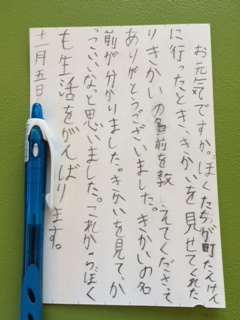 お元気ですか。ぼくたちが町たんけん
に行ったとき、きかいを見せてくれた
りきかいの名前を教えてくださって
ありがとうございました。きかいの名
前が分かりました。きかいを見て、か
っこいいなと思いました。これからぼく
も生活をがんばります。
十一月五日